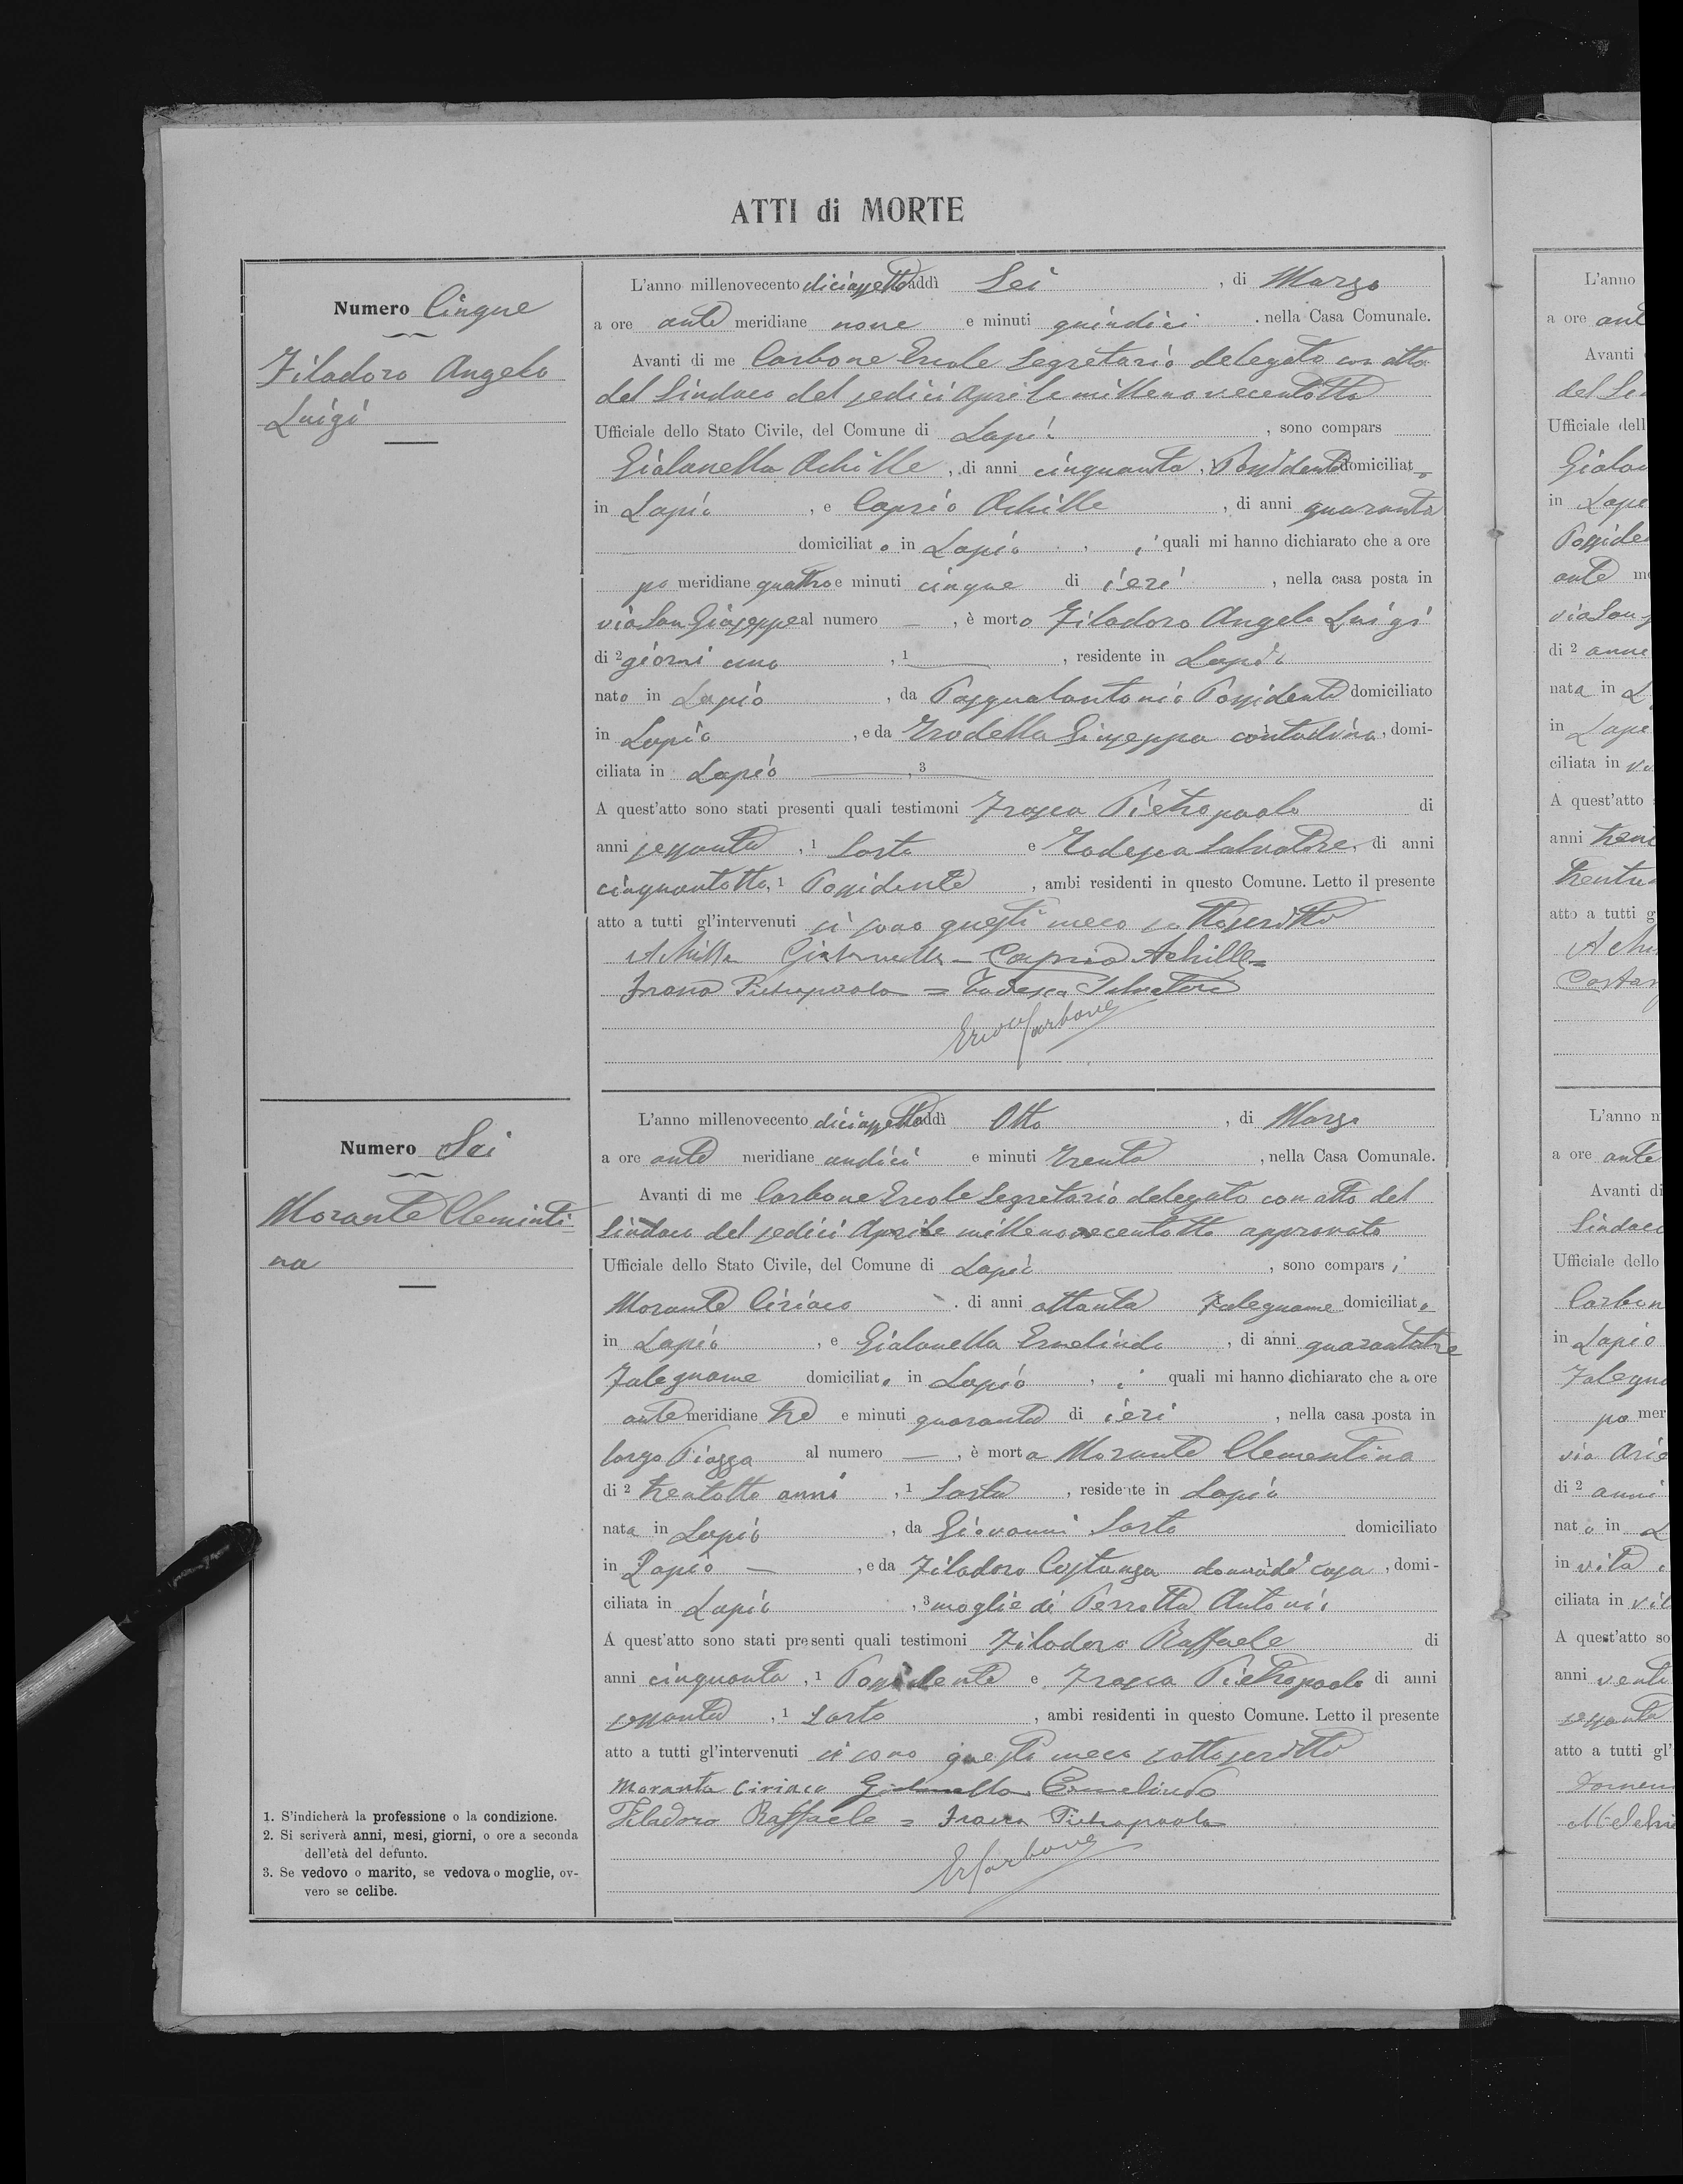 ATTI di MORTE
Numero Cinque
Filadoro Angelo
Luigi
L'anno millenovecento diciassette addì Sei, di Marzo
a ore ante meridiane nove e minuti quindici, nella Casa Comunale.
Avanti di me Carbone Ercole Segretario delegato con atto
del Sindaco del sedici Aprile millenovecentotto
Ufficiale dello Stato Civile, del Comune di Lapio, sono compars
Gialanella Achille, di anni cinquanta, Possidente domiciliato
in Lapio, e Caprio Achille, di anni quaranta
domiciliato in Lapio, i quali mi hanno dichiarato che a ore
po meridiane quattro e minuti cinque di ieri, nella casa posta in
via San Giuseppe al numero —, è morto Filadoro Angelo Luigi
di 2 giorni uno, 1 —, residente in Lapio
nato in Lapio, da Pasqualantonio Possidente domiciliato
in Lapio, e da Giuseppa contadina, domi-
ciliata in Lapio —, 3 —
A quest'atto sono stati presenti quali testimoni Frasca Pietropaolo di
anni sessanta, 1 Sarto e Todesca Salvatore, di anni
cinquantotto, 1 Possidente, ambi residenti in questo Comune. Letto il presente
atto a tutti gl'intervenuti si sono questi meco sottoscritti
Achille Gialanella - Caprio Achille =
Frasca Pietropaolo = Todesca Salvatore
Ercole Carbone
Numero Sei
Morante Clementi-
na
L'anno millenovecento diciassette addì Otto, di Marzo
a ore ante meridiane undici e minuti trenta, nella Casa Comunale.
Avanti di me Carbone Ercole Segretario delegato con atto del
Sindaco del sedici Aprile millenovecentotto approvato
Ufficiale dello Stato Civile, del Comune di Lapio, sono comparsi
Morante Ciriaco, di anni ottanta Falegname domiciliato
in Lapio, e Gialanella Ermelindo, di anni quarantatre
Falegname domiciliato in Lapio, i quali mi hanno dichiarato che a ore
ante meridiane tre e minuti quaranta di ieri, nella casa posta in
largo Piazza al numero —, è morta Morante Clementina
di 2 trentotto anni, 1 Sarta, residente in Lapio
nata in Lapio, da Giovanni Sarto domiciliato
in Lapio —, e da Filadoro Costanza donna di casa, domi-
ciliata in Lapio, 3 moglie di Perrotta Antonio
A quest'atto sono stati presenti quali testimoni Filadoro Raffaele di
anni cinquanta, 1 Possidente e Frasca Pietropaolo di anni
sessanta, 1 Sarto, ambi residenti in questo Comune. Letto il presente
atto a tutti gl'intervenuti si sono questi meco sottoscritti
Morante Ciriaco Gialanella Ermelindo
Filadoro Raffaele = Frasca Pietropaolo
E Carbone
1. S'indicherà la professione o la condizione.
2. Si scriverà anni, mesi, giorni, o ore a seconda
dell'età del defunto.
3. Se vedovo o marito, se vedova o moglie, ov-
vero se celibe.
L'anno
a ore ant
Avanti
del Se
Ufficiale dell
Gialan
in Lapi
Posside
ante me
via San
di 2 anne
nata in L
in Lapi
ciliata in
A quest'atto
anni
atto a tutti g
L'anno
a ore ante
Avanti di
Sindaco
Ufficiale dello
Carbon
in Lapio
Falegna
po mer
via
di 2 anni
nato in L
in vita
ciliata in
A quest'atto so
anni venti
sessanta
atto a tutti gl'